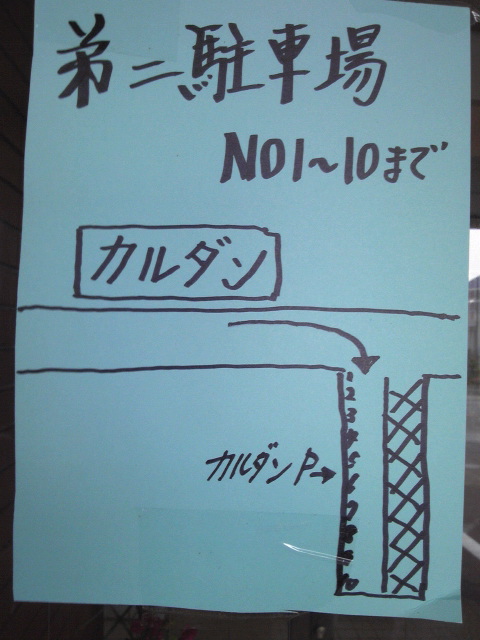 第二駐車場
NO1~10まで
カルダン
カルダンP→
1
2
3
4
5
6
7
8
9
10